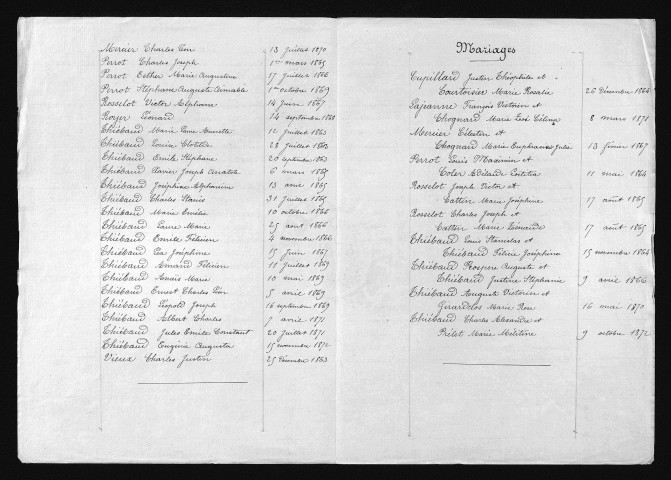 Mercier Charles Léon 13 Juillet 1870
Perrot Charles Joseph 1er mars 1865
Perrot Esther Marie Augustine 17 Juillet 1866
Perrot Stéphane Auguste Aimable 1er octobre 1869
Rosselot Victor Alphonse 14 Juin 1867
Royer Léonard 24 septembre
Thiébaud Marie Laure Annette 12 Juillet 1863
Thiébaud Louise Clotilde 28 Juillet 1863
Thiébaud Emile Stéphane 20 septembre 1863
Thiébaud Xavier Joseph 6 mars 1865
Thiébaud Joséphine Alphonsine 13 avril 1865
Thiébaud Charles 31 Juillet 1865
Thiébaud Marie Emélie 10 octobre 1866
Thiébaud Laure Marie 25 août 1866
Thiébaud Emile Félicien 4 novembre 1866
Thiébaud Léa Joséphine 15 Juin 1867
Thiébaud Armand Félicien 11 Juillet 1869
Thiébaud Anaïs Marie 10 mai 1869
Thiébaud Ernest Charles Léon 5 avril 1869
Thiébaud Léopold Joseph 16 septembre 1869
Thiébaud Albert Charles 7 avril 1871
Thiébaud Jules Emile Constant 20 Juillet 1871
Thiébaud Eugénie Augusta 15 novembre 1872
Vieux Charles Justin 25 Décembre 1863
Mariages
Cupillard Justin Théophile et
Courtoisier Marie Rosalie 26 Décembre 1864
Lajeanne François Victorin et
Chognard Marie Zoé Célina 8 mars 1871
Mercier Célestin et
Chognard Marie Euphrasie Julie 13 février 1867
Perrot Louis Maximin et
Toler Adélaïde 11 mai 1864
Rosselot Joseph Victor et
Cattin Marie Joséphine 17 août 1865
Rosselot Charles Joseph et
Cattin Marie 17 août 1865
Thiébaud Louis Stanislas et
Thiébaud Félicie Joséphine 15 novembre 1864
Thiébaud Prosper Auguste et
Thiébaud Justine Stéphanie 9 avril 1866
Thiébaud Auguste Victorin et
Girardclos Marie Rose 16 mai 1870
Thiébaud Charles Alexandre et
Prêtet Marie Mélitine 9 octobre 1872